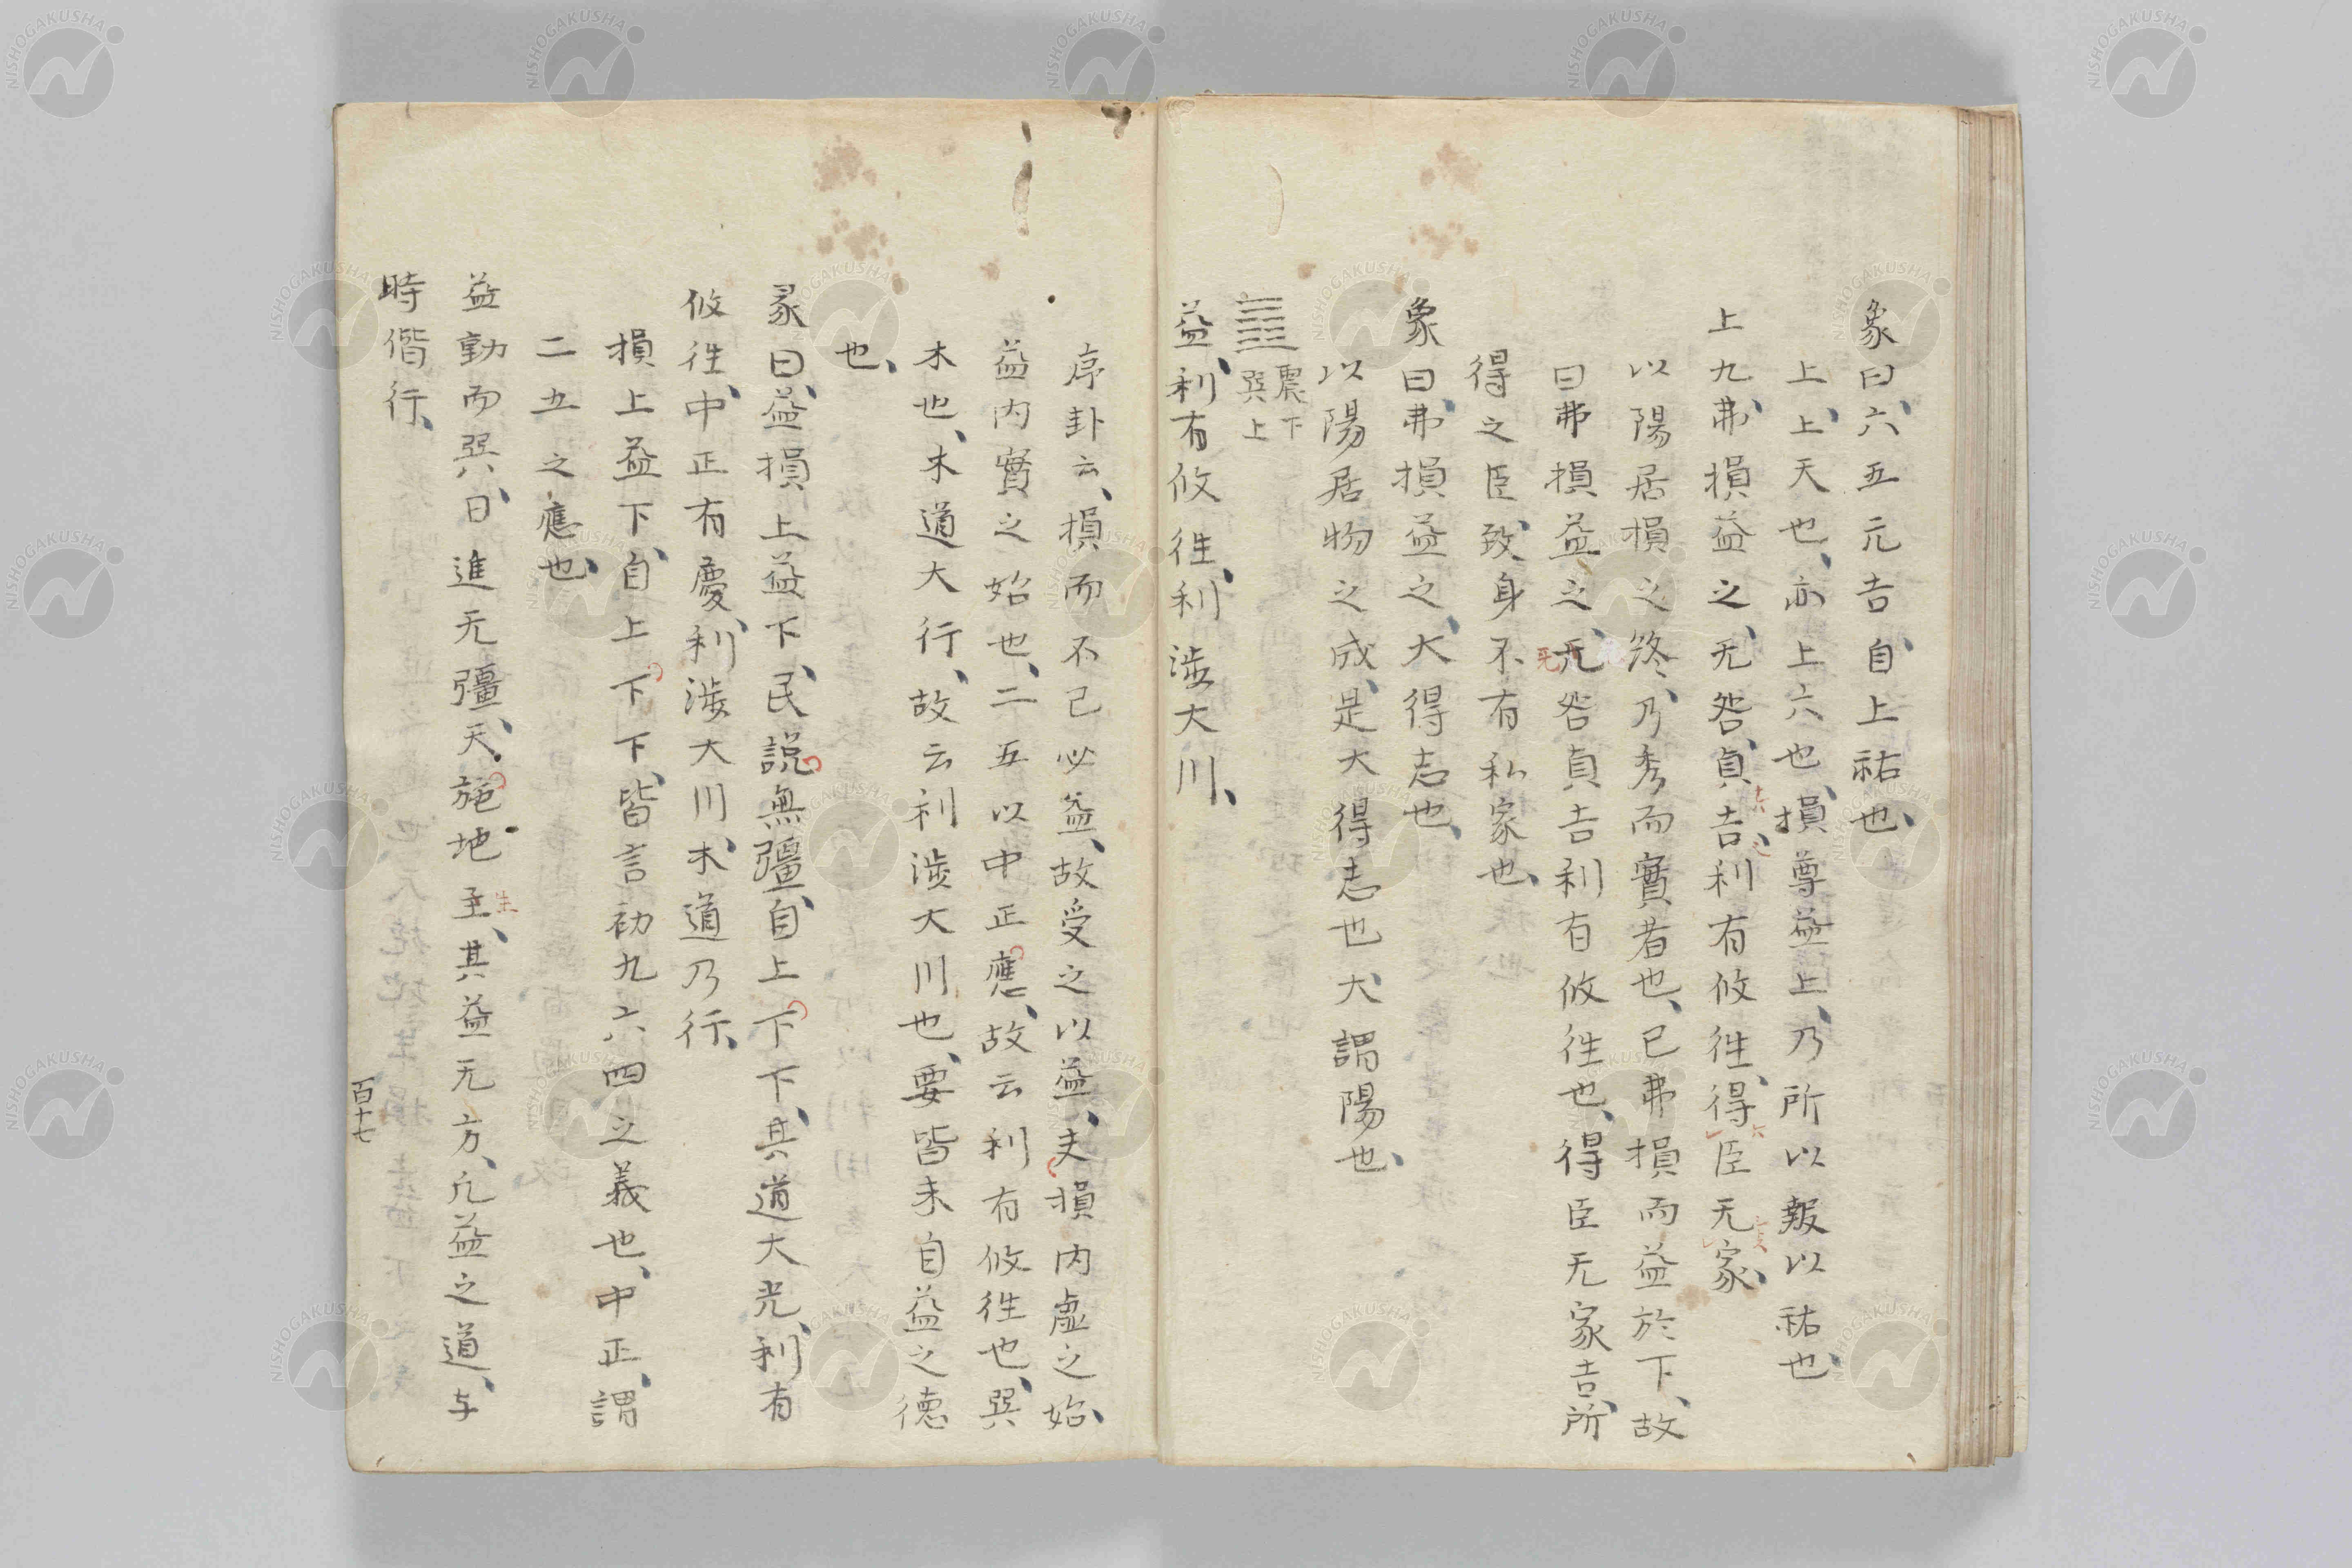 象曰、六五元吉、自上祐也、
上、上天也、亦上六也、損尊益上、乃所以報以祐也、
上九、弗損益之、无咎、貞吉、利有攸往、得臣无家、
以陽居損之終、乃秀而實者也、已弗損而益於下、故
曰弗損益之、无咎貞吉利有攸往也、得臣无家吉、所
得之臣、致身不有私家也、
象曰、弗損益之、大得志也、
以陽居物之成、是大得志也、大謂陽也、
䷩ 震下 巽上
益、利有攸往、利涉大川、
序卦云、損而不已必益、故受之以益、夫損内虛之始、
益内實之始也、二五以中正應、故云利有攸往也、巽
木也、木道大行、故云利涉大川也、要皆未自益之德
也、
彖曰、益、損上益下、民說無疆、自上下下、其道大光、利有
攸往、中正有慶、利涉大川、木道乃行、
損上益下、自上下下、皆言初九六四之義也、中正、謂
二五之應也、
益動而巽、日進无疆、天施地生、其益无方、凡益之道、与
時偕行、
百十七